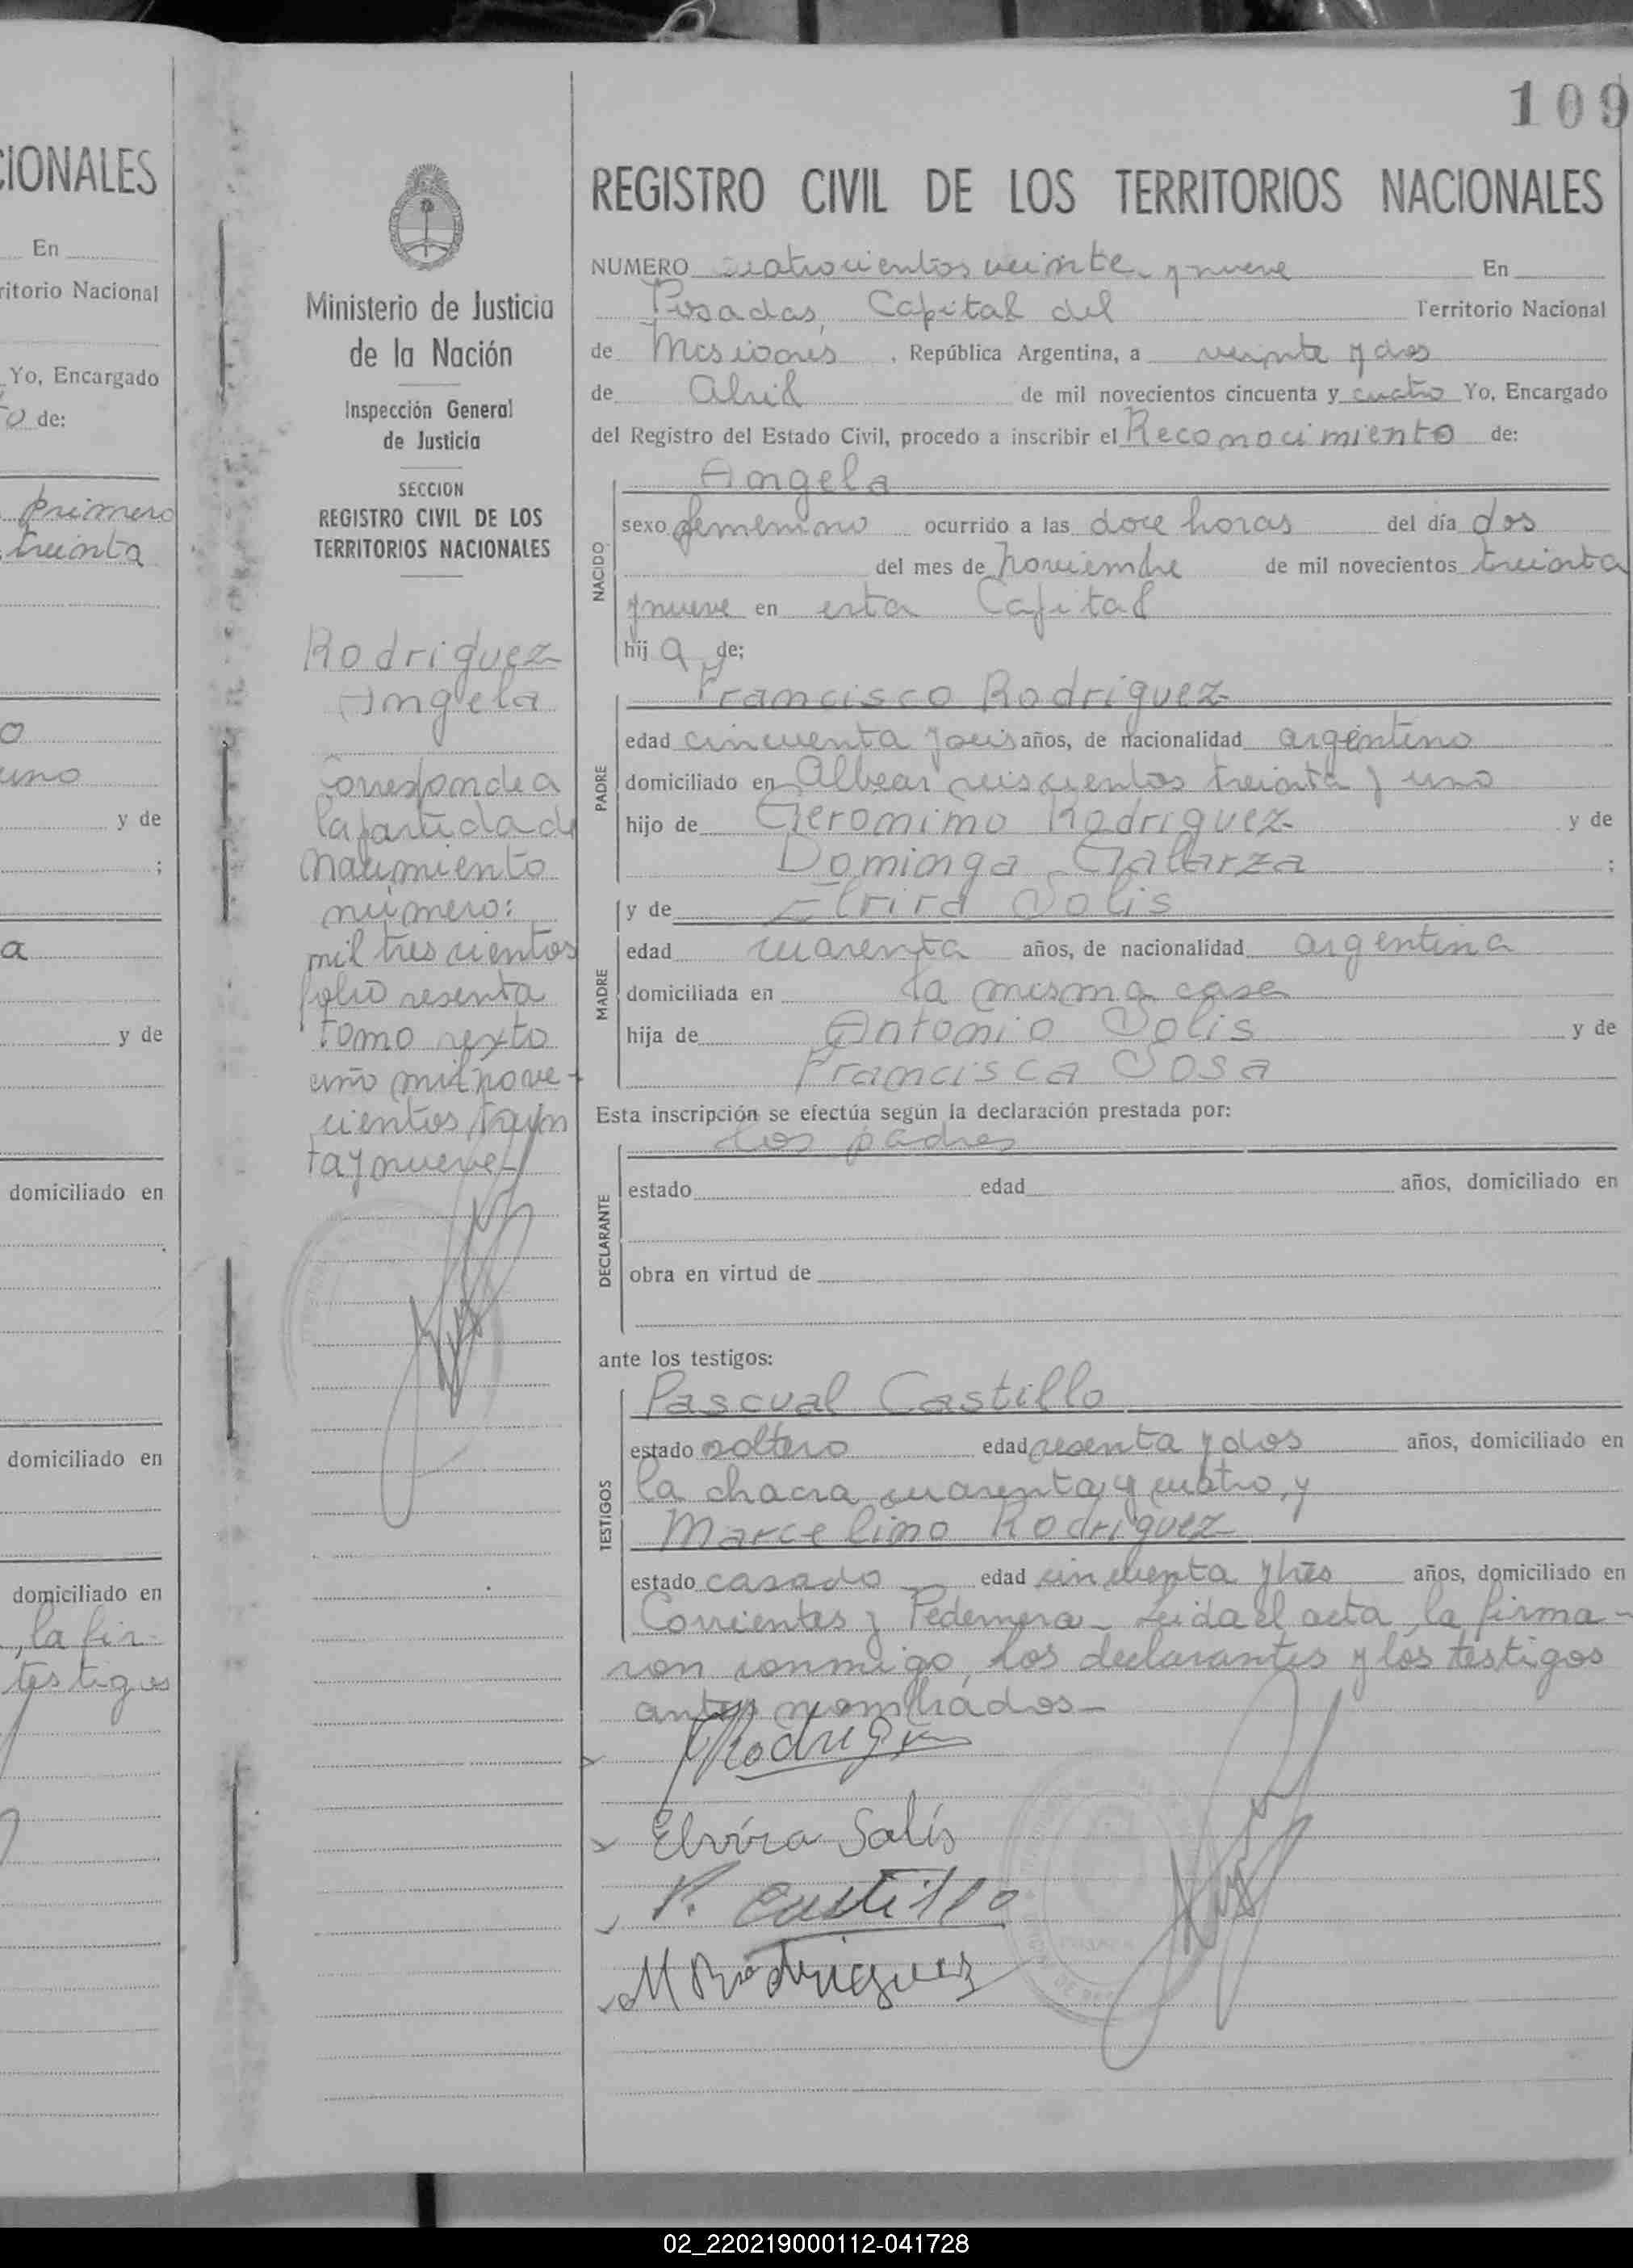 109
CIONALES
En
ritorio Nacional
Yo, Encargado
to de:
primero
treinta
o
uno
y de
;
a
y de
domiciliado en
domiciliado en
domiciliado en
, la fir-
testigos
Ministerio de Justicia
de la Nación
Inspección General
de Justicia
SECCION
REGISTRO CIVIL DE LOS
TERRITORIOS NACIONALES
Rodriguez
Angela
Corresponde a
la partida de
nacimiento
número:
mil trescientos
folio sesenta
tomo sexto
año mil nove-
cientos trein
ta y nueve
REGISTRO CIVIL DE LOS TERRITORIOS NACIONALES
NUMERO cuatrocientos veinte y nueve En
Posadas, Capital del Territorio Nacional
de Misiones, República Argentina, a veinte y dos
de Abril de mil novecientos cincuenta y cuatro Yo, Encargado
del Registro del Estado Civil, procedo a inscribir el Reconocimiento de:
NACIDO
Angela
sexo femenino ocurrido a las doce horas del día dos
del mes de noviembre de mil novecientos treinta
y nueve en esta Capital
hija de:
PADRE
Francisco Rodríguez
edad cincuenta y seis años, de nacionalidad argentino
domiciliado en Albear seiscientos treinta y uno
hijo de Gerónimo Rodríguez y de
Dominga Galarza ;
MADRE
y de Elvira Solis
edad cuarenta años, de nacionalidad argentina
domiciliada en la misma casa
hija de Antonio Solis y de
Francisca Sosa
Esta inscripción se efectúa según la declaración prestada por:
DECLARANTE
los padres
estado edad años, domiciliado en
obra en virtud de
ante los testigos:
TESTIGOS
Pascual Castillo
estado soltero edad sesenta y dos años, domiciliado en
la chacra cuarenta y cuatro, y
Marcelino Rodríguez
estado casado edad cincuenta y tres años, domiciliado en
Corrientes y Pedernera - Leida el acta, la firma-
ron conmigo, los declarantes y los testigos
antes nombrados-
Elvira Solís
P. Castillo
M Rodrigues
02_220219000112-041728